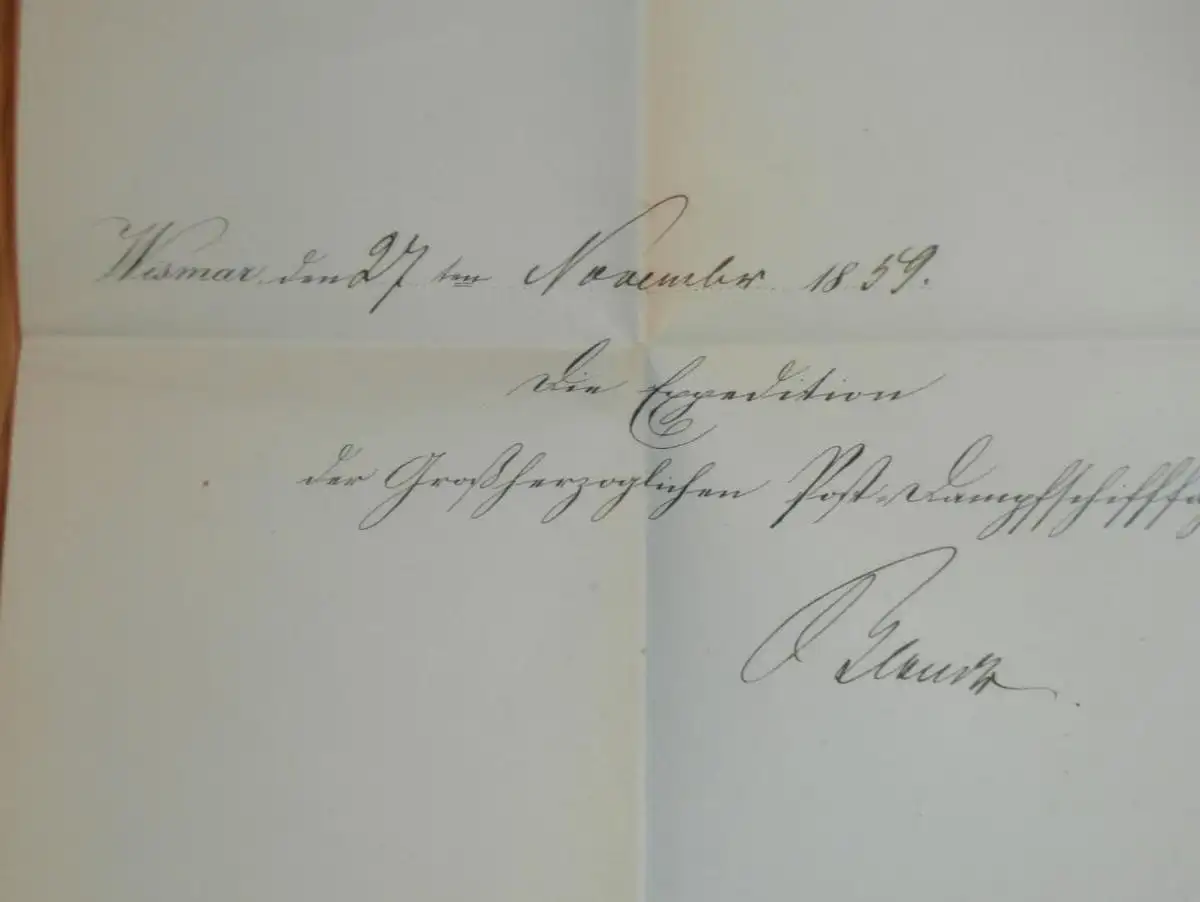 Wismar, den 27 ten Novembr 1859.
Die Expedition
der Großherzoglichen Post-Dampfschifffa